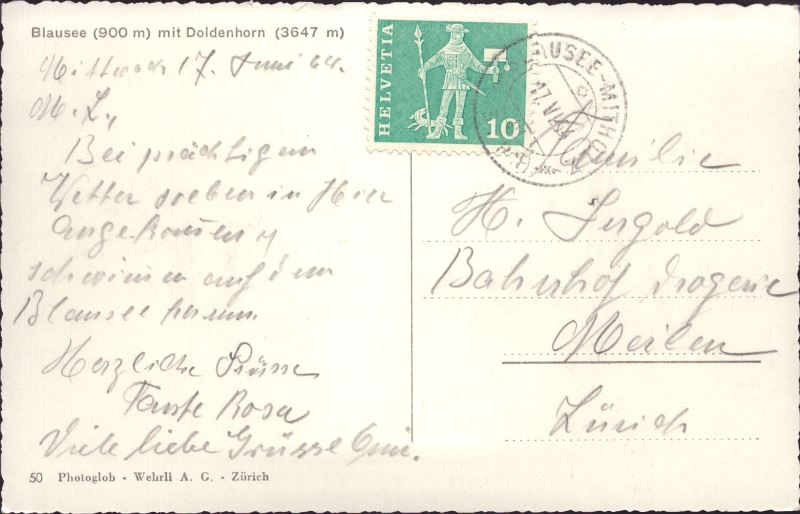 Blausee (900 m) mit Doldenhorn (3647 m)
Mittwoch 17. Juni 64.
M. L.,
Bei prächtigem
Wetter soeben in Hier
angekommen
schwimmen auf dem
Blausee herum.
Herzliche Grüsse
Tante Rosa
Viele liebe Grüsse
50 Photoglob - Wehrli A. G. - Zürich
HELVETIA
10
BLAUSEE-MITHOLZ
17.VI.64
Familie
H.
Bahnhof Drogerie
Meilen
Zürich